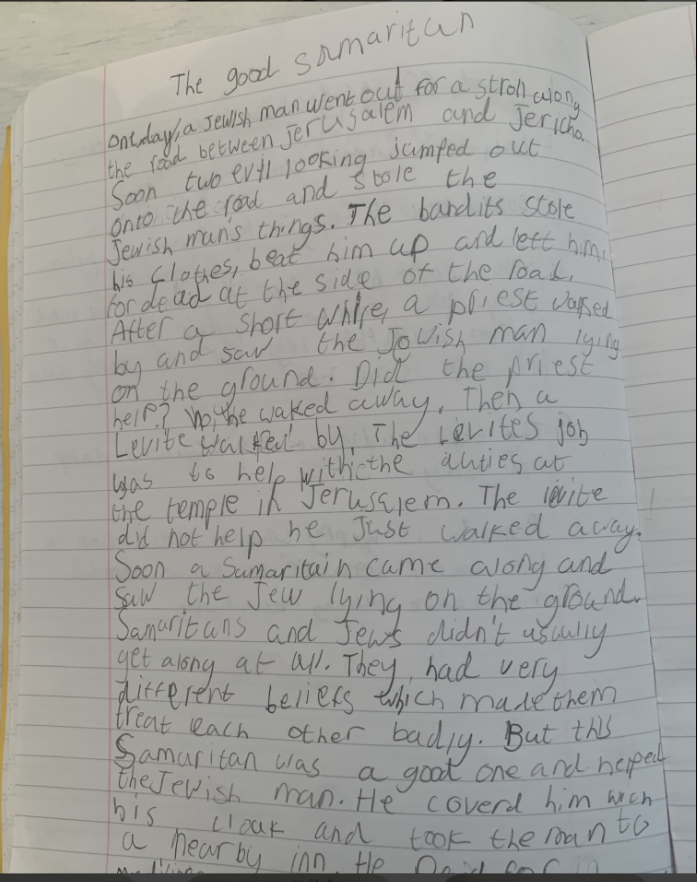 The good samaritan
One day, a Jewish man went out for a stroll along
the road between Jerusalem and Jericho.
Soon two evil looking jumped out
onto the road and stole the
Jewish mans things. The bandits stole
his clothes, beat him up and left him
for dead at the side of the road.
After a short while, a priest walked
by and saw the Jewish man lying
on the ground. Did the priest
help? No, he waked away. Then a
Levite walked by. The Levites job
was to help with the duties at
the temple in Jerusalem. The levite
did not help he Just walked away.
Soon a Samaritain came along and
saw the Jew lying on the ground.
Samaritans and Jews didn't usually
get along at all. They had very
different beliefs which made them
treat each other badly. But this
Samaritan was a good one and helped
the Jewish man. He coverd him with
his cloak and took the man to
a nearby inn. He Paid for